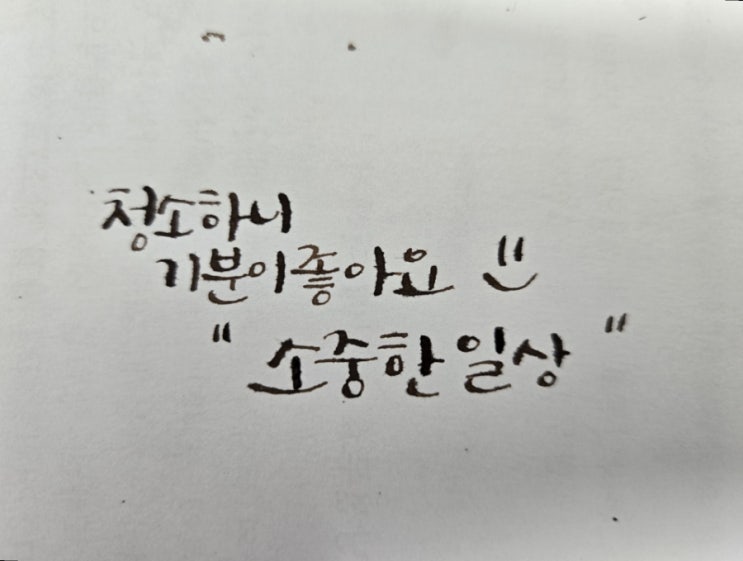 청소하니
기분이좋아요 :)
" 소중한 일상 "